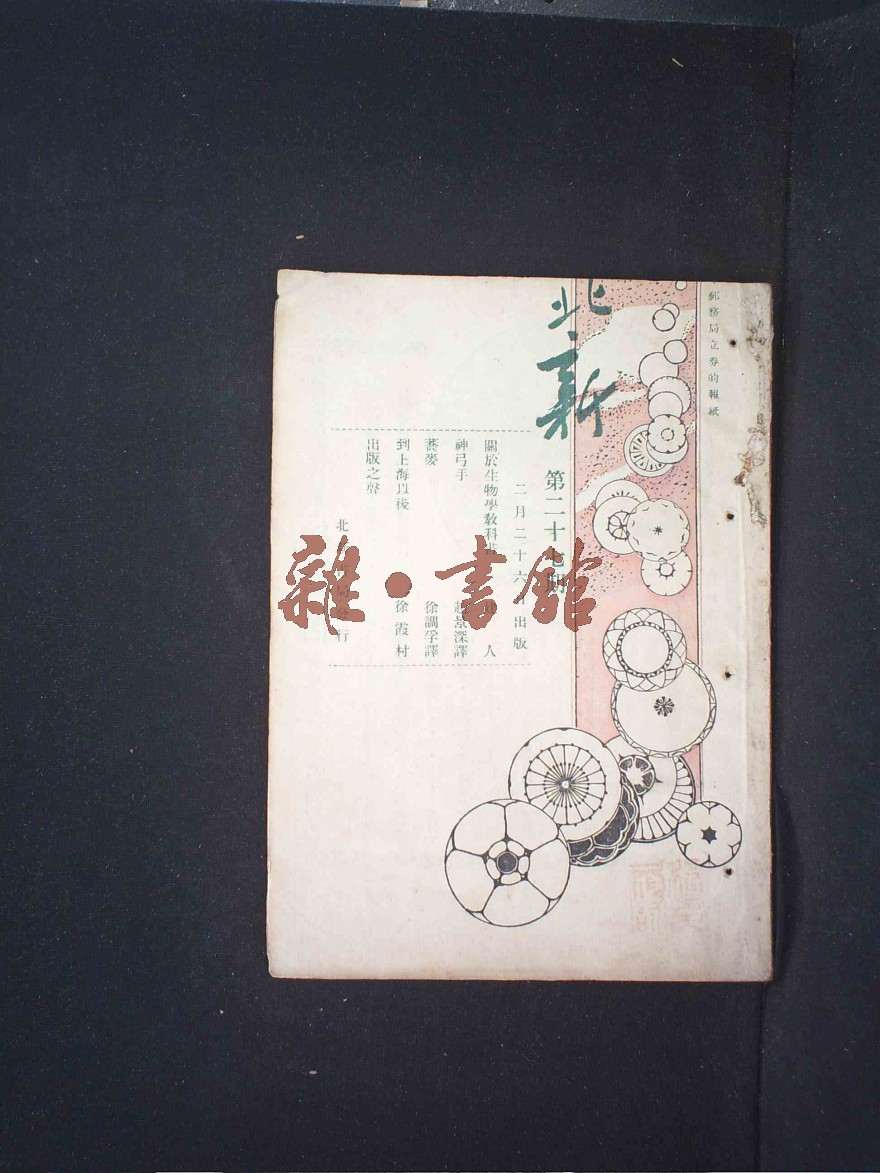 郵務局立券的報紙
北新
第二十七期
二月二十六日出版
關於生物學教科書 人
神弓手 趙景深譯
蕎麥 徐調孚譯
到上海以後 徐霞村
出版之聲
北 書局發行
雜·書館